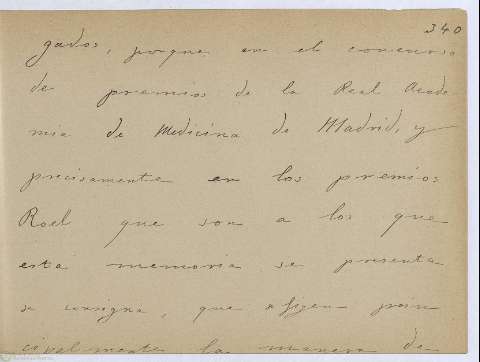 340
gados, porque en el concurso
de premios de la Real Acade-
mia de Medicina de Madrid, y
precisamente en los premios
Roel que son a los que
esta memoria se presenta
se consigna, que se fijen prin
cipalmente la manera de